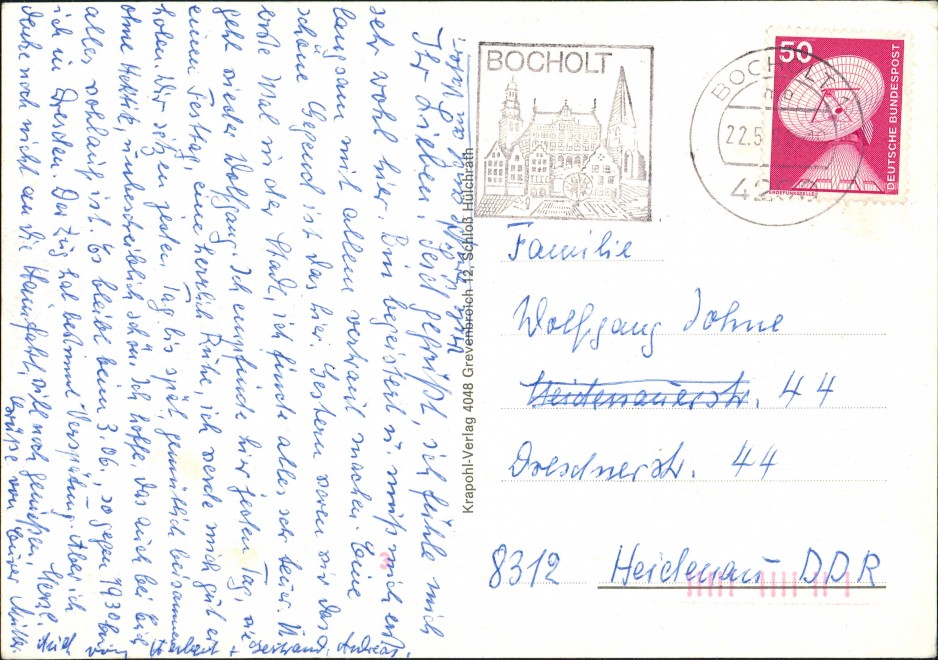 Ihr Lieben. Seid gegrüßt, ich fühle mich
sehr wohl hier. Bin begeistert u. muß mich erst
langsam mit allem vertraut machen. Eine
schöne Gegend ist das hier. Gestern waren wir das
erste Mal in der Stadt, ich finde alles sehr teuer. Nun
geht wieder Wolfgang. Ich empfinde hier jeden Tag, wie
einen Festtag, eine herrlich Ruhe, ich werde mich gut er-
holen. Wir sitzen jeden Tag bis spät gemütlich beisammen
ohne Hektik, unbeschreiblich schön. Ich hoffe, das auch bei Euch
alles wohlauf ist. Es bleibt beim 3.06., so gegen 1930 bin
ich in Dresden. Der Zug hat bestimmt Verspätung. Aber ich
denke noch nicht an die Heimfahrt, will noch genießen. Herzl.
Grüße von Eurer Mutter.
Auch von Herbert + Gertraud, Andreas.
BOCHOLT
BOCHOLT 1
22.5.
42
50
DEUTSCHE BUNDESPOST
ERDEFUNKSTELLE
Krapohl-Verlag 4048 Grevenbroich 12, Schloß Hülchrath
Familie
Wolfgang Johne
Heidenauerstr. 44
Dresdnerstr. 44
8312 Heidenau DDR